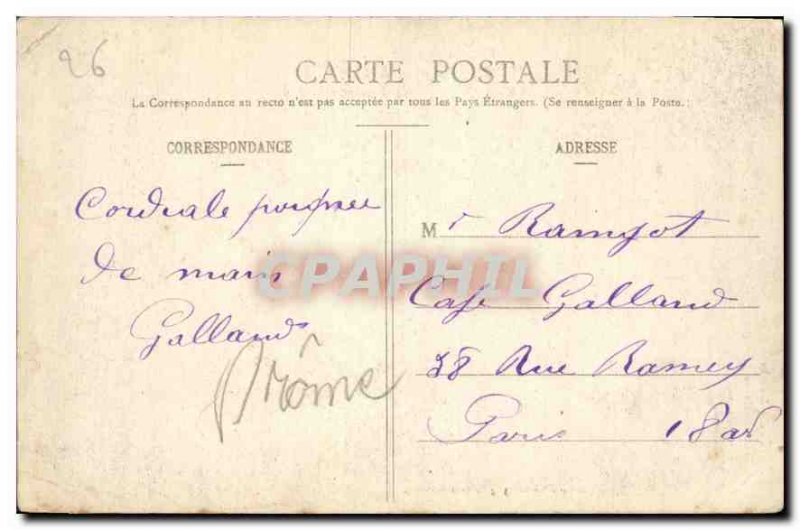 26
CARTE POSTALE
La Correspondance au recto n'est pas acceptée par tous les Pays Étrangers. (Se renseigner à la Poste.)
CORRESPONDANCE
ADRESSE
Cordiale poignée
de main
Galland
Drôme
Mr Raingot
Café Galland
58 Rue Ramey
Paris 18ar
CPAPHIL